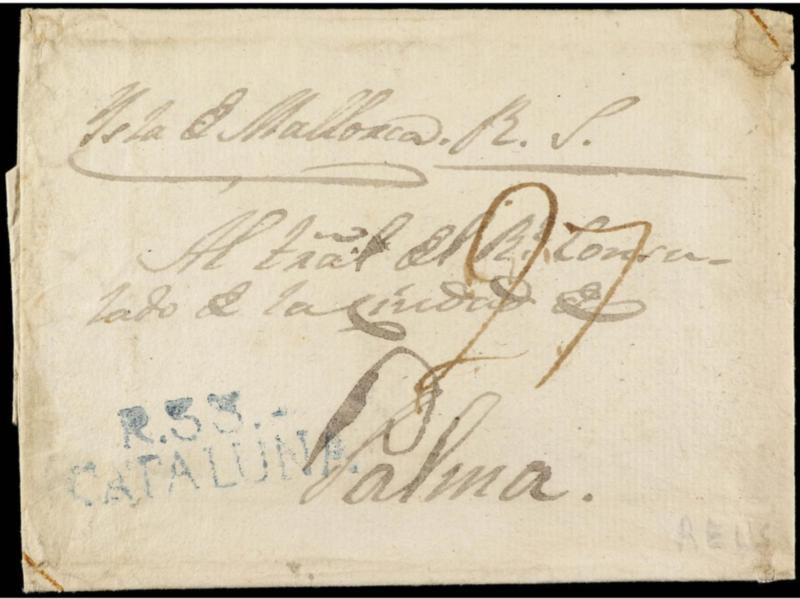 Ysla de Mallorca. R. S.
Al trãl del Rˡ. Consu-
lado de la Ciudad de
27
Palma.
R.33.-
CATALUÑA.
REUS